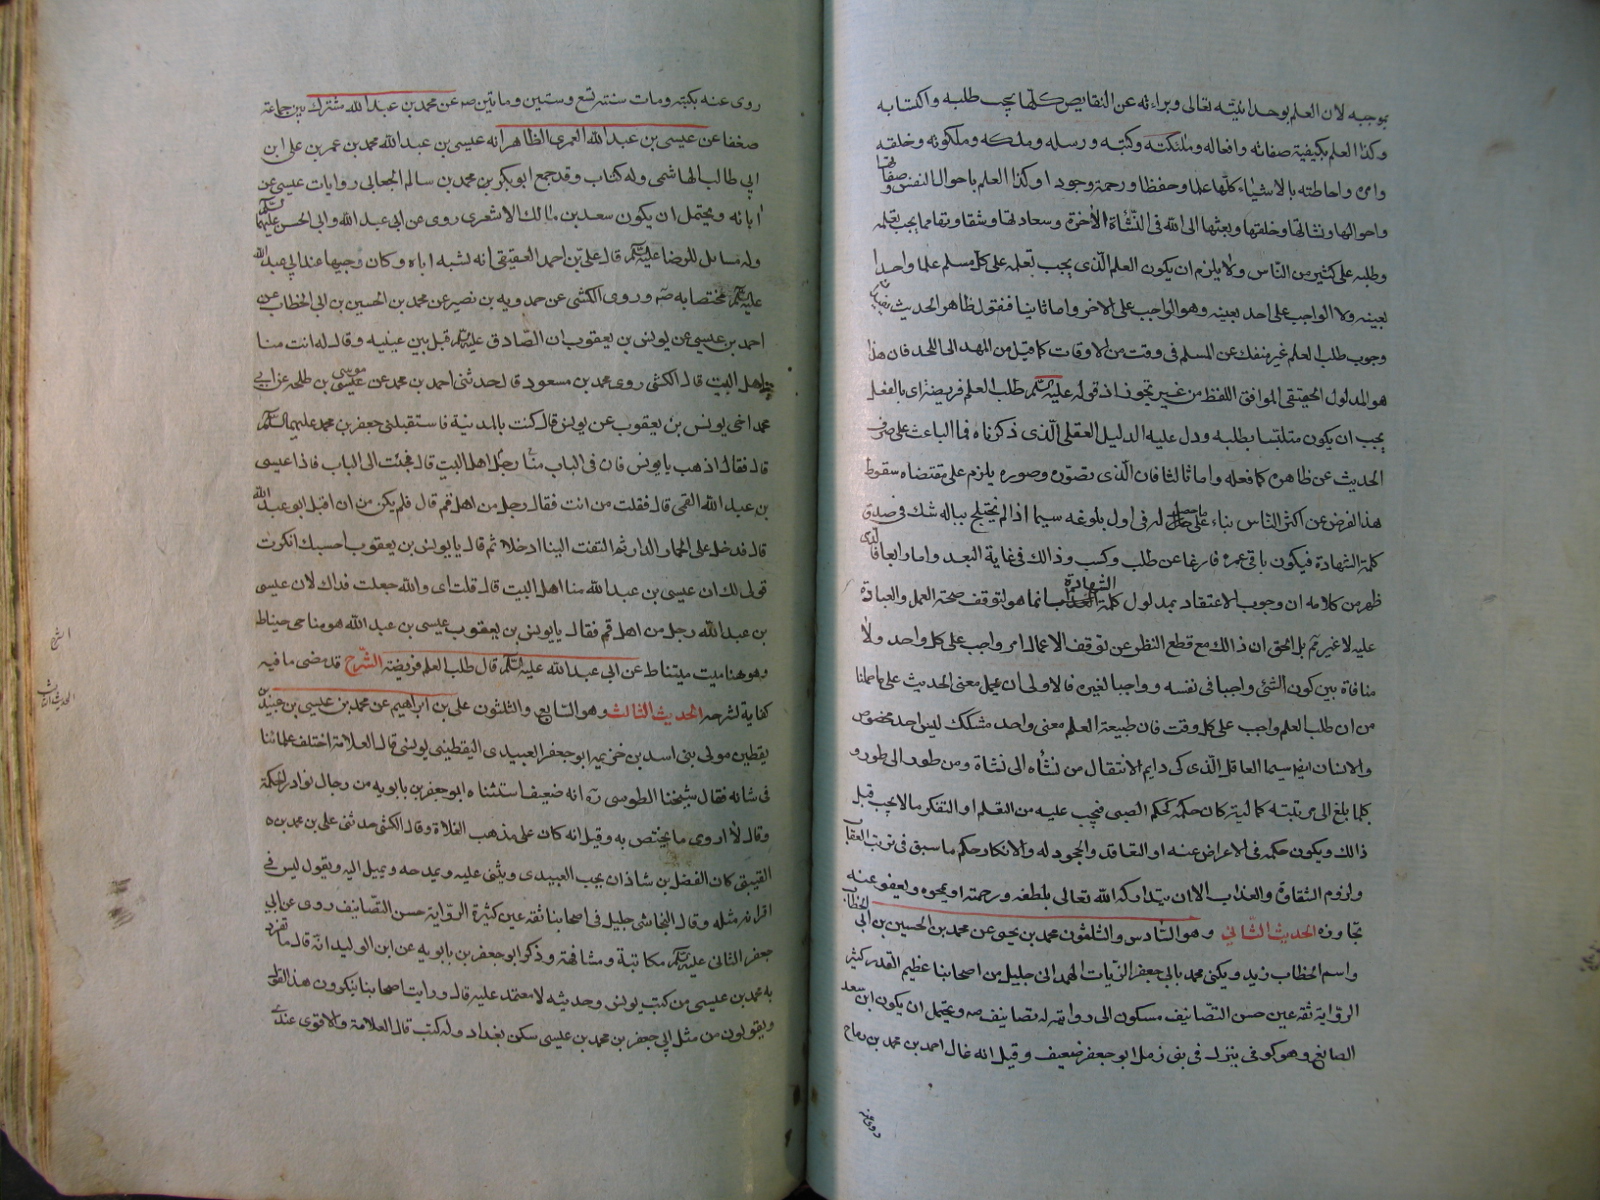 بموجبه لان العلم بوحدانيته تعالى وبراءته عن النقايص كلها يجب طلبه واكتسابه
وكذا العلم بكيفية صفاته وافعاله وملئكته وكتبه ورسله وملكه وملكوته وخلقه
وامره واحاطته بالاشياء كلها علما وحفظا ورحمة وجودا وكذا العلم باحوال النفس وصفاتها
واحوالها ونشأتها وخلقتها وبعثها الى الله فى النشاة الاخرة وسعادتها وشقاوتها مما يجب تعلمه
وطلبه على كثير من الناس ولا يلزم ان يكون العلم الذى يجب تعلمه على كل مسلم علما واحدا
بعينه ولا الواجب على احد بعينه وهو الواجب على الاخر واما ثانيا فنقول ظاهر الحديث
وجوب طلب العلم غير منفك عن المسلم فى وقت من الاوقات كما قيل من المهد الى اللحد فان هذا
هو المدلول الحقيقى الموافق اللفظ من غير تجوز اذ قوله عليه السلم طلب العلم فريضة اى بالفعل
يجب ان يكون متلبسا بطلبه ودل عليه الدليل العقلى الذى ذكرناه فما الباعث على صرف
الحديث عن ظاهره كما فعله واما ثالثا فان الذى تصوره وصوره يلزم على مقتضاه سقوط
هذا الفرض عن اكثر الناس بناء على ما حصل له فى اول بلوغه سيما اذا لم يختلج بباله شك فى صدق
كلمة الشهادة فيكون باقى عمره فارغا عن طلب وكسب وذالك فى غاية البعد واما رابعا فالذى
ظهر من كلامه ان وجوب الاعتقاد بمدلول كلمة الشهادة انما هو لتوقف صحة العمل والعبادة
عليه لا غير ثم بل الحق ان ذالك مع قطع النظر عن توقف الاعمال امر واجب على كل واحد ولا
منافاة بين كون الشئ واجبا فى نفسه وواجبا لغيره فالاولى ان يحمل معنى الحديث على ما حملنا
من ان طلب العلم واجب على كل وقت فان طبيعة العلم معنى واحد مشكك ليس احد مخصوص
والانسان سيما العاقل الذكى دايم الانتقال من نشأه الى نشاة ومن طور الى طور و
كلما بلغ الى مرتبته كمالية كان حكمه كحكم الصبى فيجب عليه من التعلم او التفكر ما لا يجب قبل
ذالك ويكون حكمه فى الاعراض عنه او التقاعد والجحود له والانكار حكم ما سبق فى ترتب العقاب
ولزوم الشقاوة والعذاب الا ان يتداركه الله تعالى بلطفه ورحمته او يمحوه ويعفو عنه
تجاوزه الحديث الثانى وهو السادس والثلثون محمد بن يحيى عن محمد بن الحسين بن ابى الخطاب
واسم الخطاب زيد ويكنى محمد بابى جعفر الزيات الهمدانى جليل من اصحابنا عظيم القدر كثير
الرواية ثقة عين حسن التصانيف مسكون الى روايته له تصانيف صه ويحتمل ان يكون ابن سعد
الصايغ وهو كوفى ينزل فى بنى زهل ابو جعفر ضعيف وقيل انه غال احمد بن محمد بن رماح
روى عنه
روى عنه بكتبه ومات سنة تسع وستين ومايتين صه عن محمد بن عبد الله مشترك بين جماعة
ضعفا عن عيسى بن عبد الله العمرى الظاهر انه عيسى بن عبد الله محمد بن عمر بن على ابن
ابى طالب الهاشمى وله كتاب وقد جمع ابو بكر بن محمد بن سالم الجعابى روايات عيسى عن
اباءه ويحتمل ان يكون سعد بن مالك الاشعرى روى عن ابى عبد الله وابى الحسن عليهما السلم
وله مسايل للرضا عليه السلم قال على بن احمد العقيقى انه نشبه اباه وكان وجيها عند ابى عبد الله
عليه السلم مختصا به صه وروى الكشى عن حمدويه بن نصير عن محمد بن الحسين بن ابى الخطاب عن
احمد بن عيسى عن يونس بن يعقوب ان الصادق عليه السلم قبل بين عينيه وقال له انت منا
اهل البيت قال الكشى روى محمد بن مسعود قال حدثنى احمد بن محمد عن موسى بن طلحه عن ابى
محمد اخى يونس بن يعقوب عن يونس قال كنت بالمدنية فاستقبلنى جعفر بن محمد عليهما السلم
قال فقال اذهب يا يونس فان فى الباب منا رجل اهل البيت قال فجئت الى الباب فاذا عيسى
بن عبد الله القمى قال فقلت من انت فقال رجل من اهل قم قال فلم يكن من ان اقبل ابى عبد الله
قال فدخل على الحمار الدار ثم التفت الينا ادخلا ثم قال يا يونس بن يعقوب احسبك انكرت
قولى لك ان عيسى بن عبد الله منا اهل البيت قال قلت اى والله جعلت فداك لان عيسى
بن عبد الله رجل من اهل قم فقال يا يونس بن يعقوب عيسى بن عبد الله هو منا حى
وهو هنا ميت عن ابى عبد الله عليه السلم قال طلب العلم فريضة الشرح قد مضى ما فيه
كفاية لشرحه الحديث الثالث وهو السابع والثلثون على بن ابراهيم عن محمد بن عيسى بن عبيد بن
يقطين مولى بنى اسد بن خزيمه ابو جعفر العبيدى اليقطينى يونسى قال العلامة اختلف علمائنا
فى شانه فقال شيخنا الطوسى ره انه ضعيف استثناه ابو جعفر بن بابويه من رجال نوادر الحكمة
وقال لا اروى ما يختص به وقيل انه كان على مذهب الغلاة وقال الكشى حدثنى على بن محمد
القتيبى كان الفضل بن شاذان يحب العبيدى ويثنى عليه ويمدحه ويميل اليه ويقول ليس فى
اقرانه مثله وقال النجاشى جليل فى اصحابنا ثقه عين كثيرة الرواية حسن التصانيف روى عن ابى
جعفر الثانى عليه السلم مكاتبة ومشافهة وذكر ابو جعفر بن بابويه عن ابن الوليد انه قال ما تفرد
به محمد بن عيسى من كتب يونس وحديثه لا معتمد عليه قال ورايت اصحابنا ينكرون هذا القول
ويقولون من مثل ابى جعفر بن محمد بن عيسى سكن بغداد وله كتب قال العلامة والاقوى عندى
الشرح
الحديث الثالث